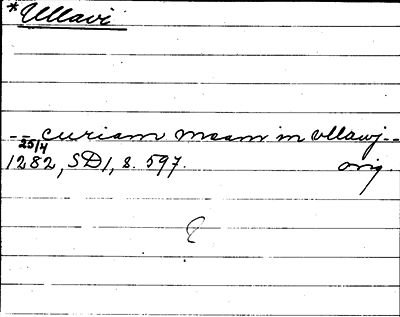 *Ullavi
-- curiam meam in vllawj --
25/4
1282, SD1, s. 597. orig.